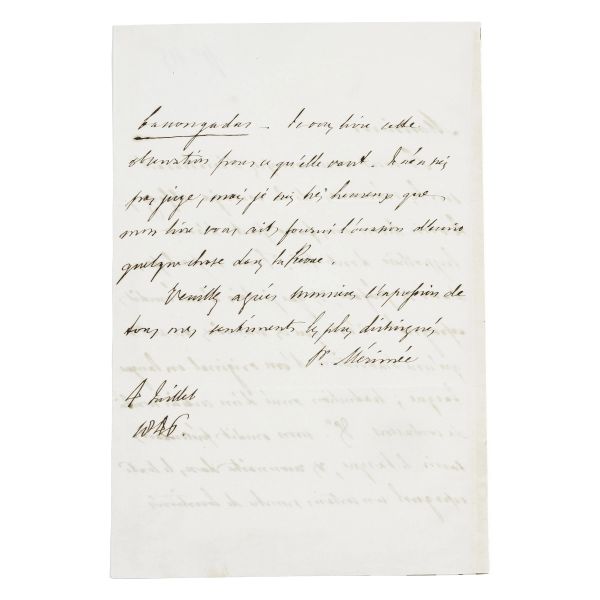 Canongadas – Je vous livre cette
observation pour ce qu'elle vaut. Je n'en suis
pas juge, mais je suis très heureux que
mon livre vous ait fourni l'occasion d'écrire
quelque chose dans la Revue.
Veuillez agréer Monsieur l'expression de
tous mes sentiments les plus distingués
Pr. Mérimée
4 Juillet
1846.